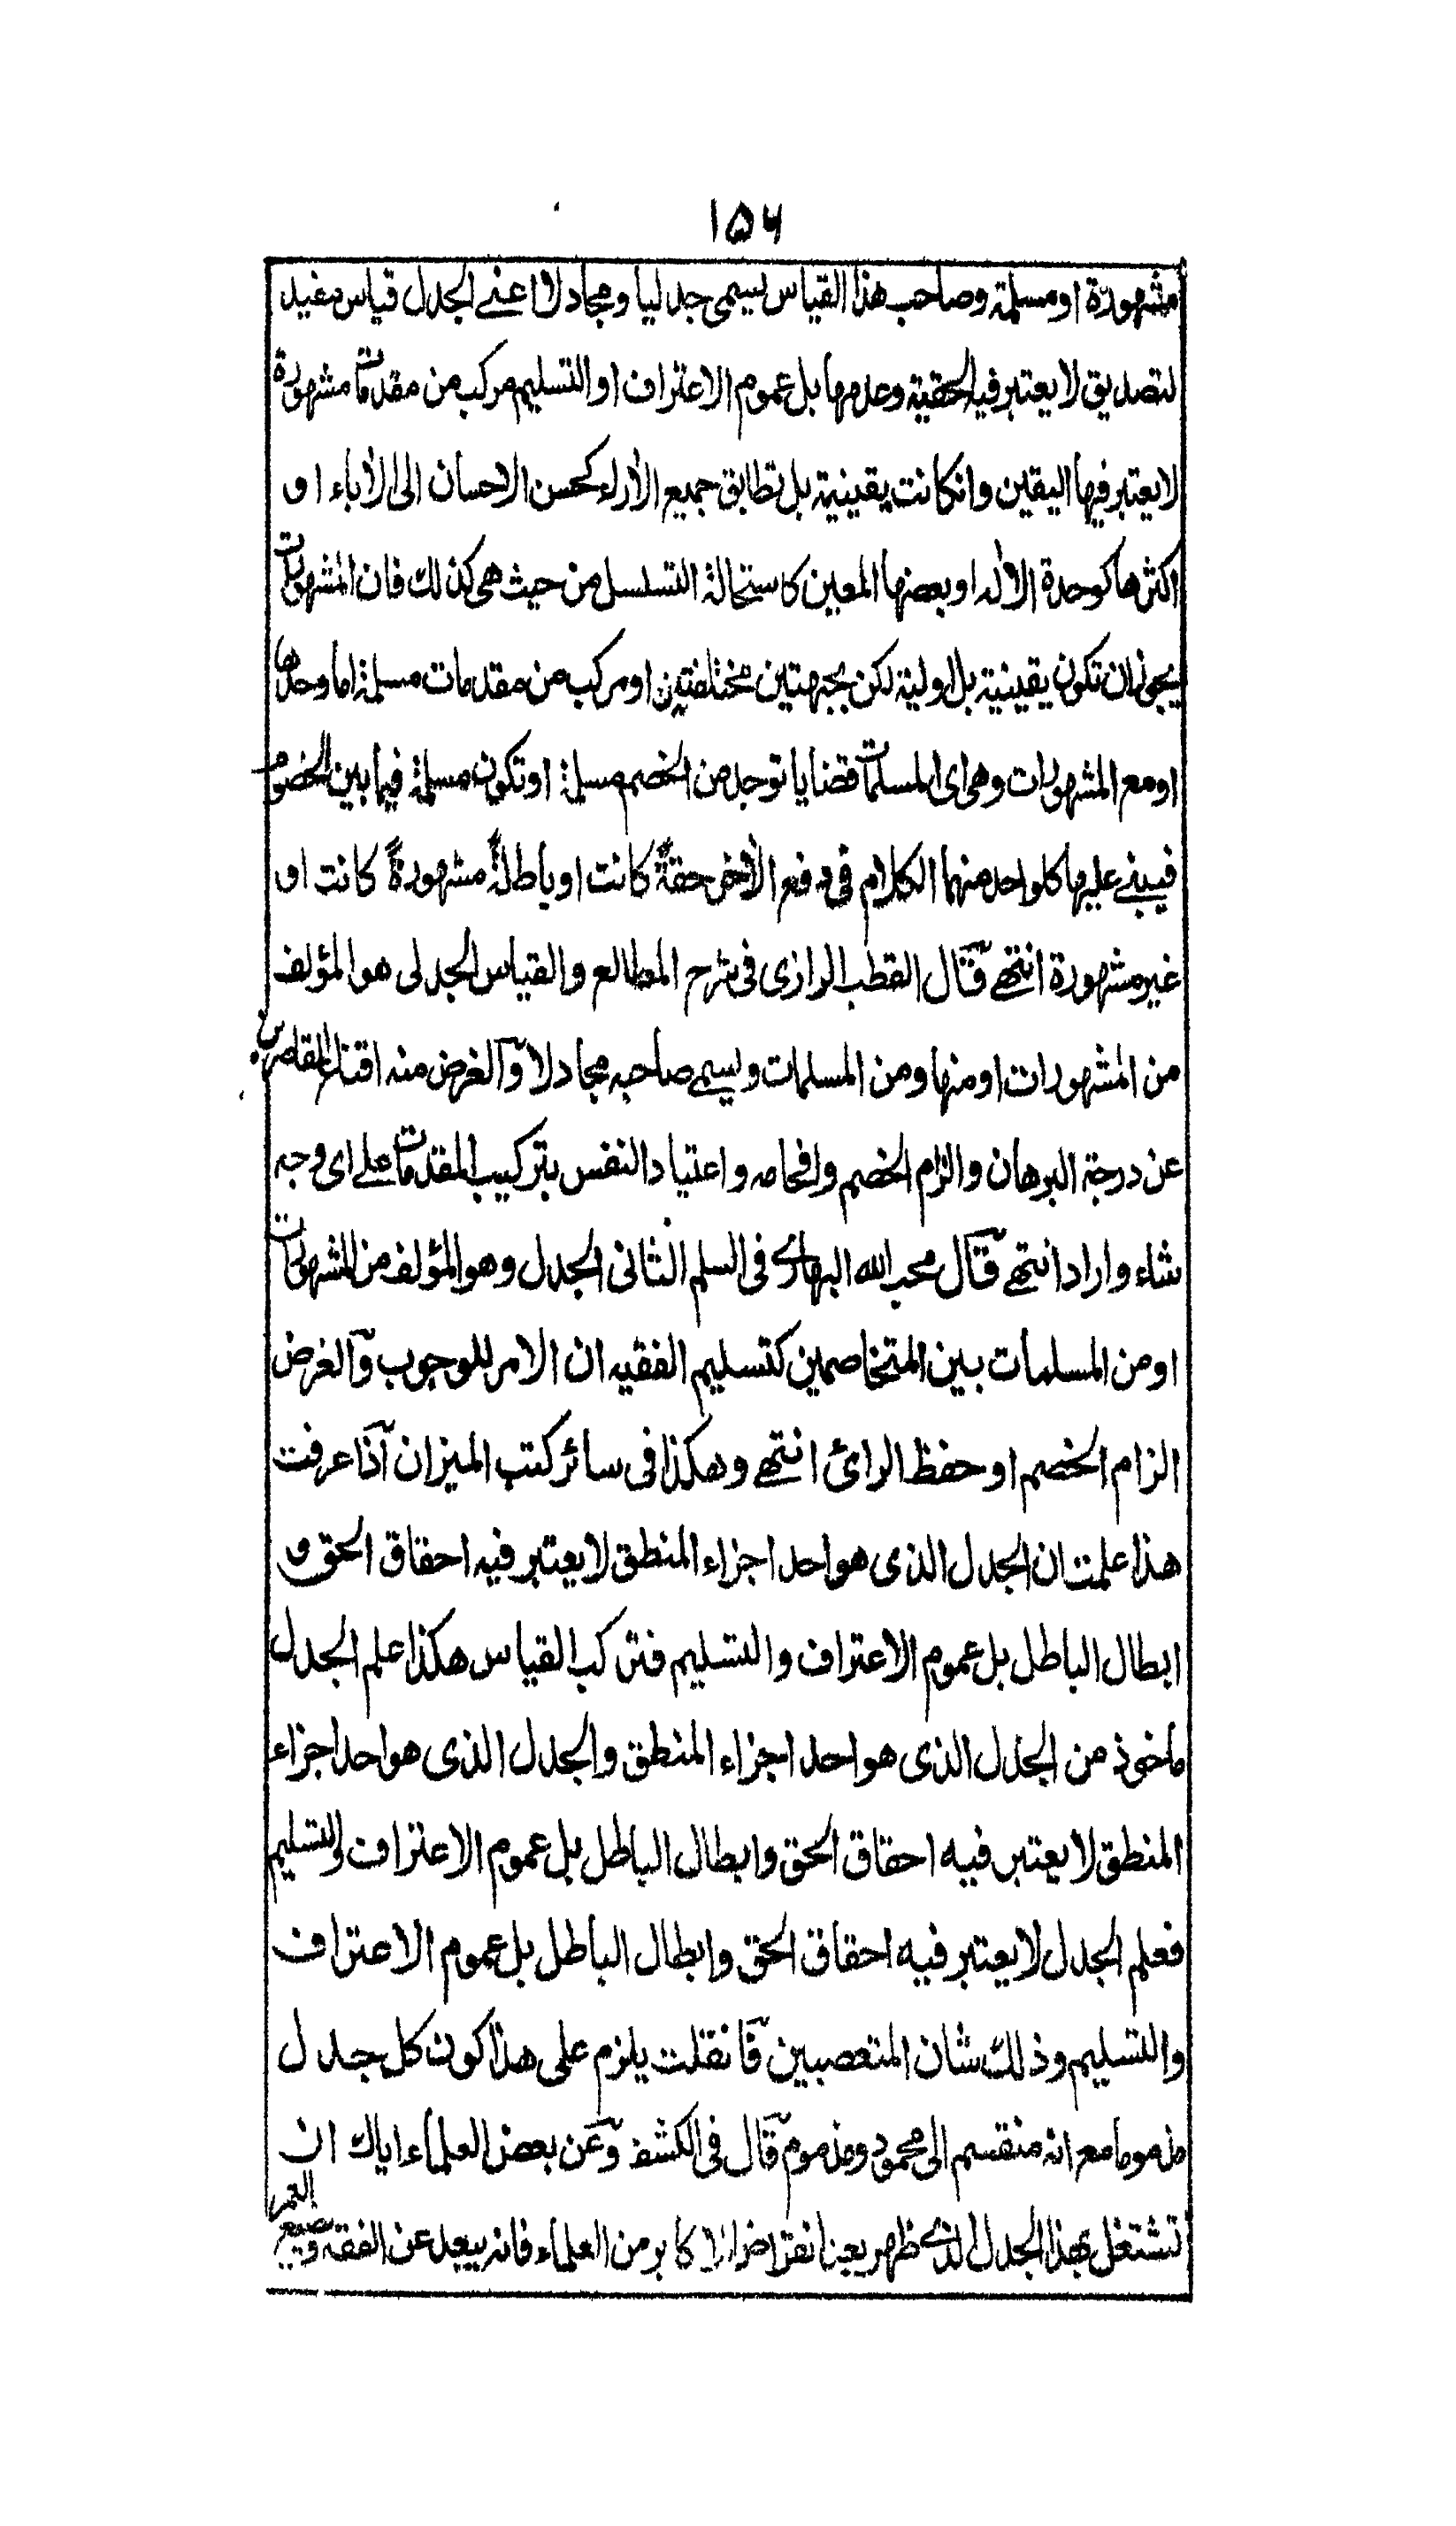 ۱۵۶
مشهورة او مسلمة وصاحب هذا القياس يسمى جدليا ومجادلا اعنے الجدل قياس مفيد
لتصديق لا يعتبر فيه الحقية وعدمها بل عموم الاعتراف او التسليم مركب من مقدمات مشهورة
لا يعتبر فيها اليقين وانكانت يقينية بل تطابق جميع الأراء كحسن الاحسان الى الأباء او
اكثرها كوحدة الاله او بعضها المعين كاستحالة التسلسل من حيث هى كذلك فان المشهورات
يجوز ان تكون يقينية بل اولية لكن بجهتين مختلفتين او مركب من مقدمات مسلمة اما وحدها
او مع المشهورات وهى اى المسلمات قضايا توجد من الخصم مسلمة او تكون مسلمة فيما بين الخصوم
فيبنے عليها كل واحد منهما الكلام فى دفع الأخر حقةً كانت او باطلةً مشهورةً كانت او
غير مشهورة انتهے قال القطب الرازى فى شرح المطالع والقياس الجدلى هو المؤلف
من المشهورات او منها ومن المسلمات ويسمے صاحبه مجادلا والغرض منه اقناع القاصرين
عن درجة البرهان والزام الخصم وافحامه واعتياد النفس بتركيب المقدمات علے اى وجه
شاء واراد انتهے قال محب الله البهارے فى السلم الثانى الجدل وهو المؤلف من المشهورات
او من المسلمات بين المتخاصمين كتسليم الفقيه ان الامر للوجوب والغرض
الزام الخصم او حفظ الرائ انتهے وهكذا فى سائر كتب الميزان اذا عرفت
هذا علمت ان الجدل الذى هو احد اجزاء المنطق لا يعتبر فيه احقاق الحق و
ابطال الباطل بل عموم الاعتراف والتسليم فنركب القياس هكذا علم الجدل
ماخوذ من الجدل الذى هو احد اجزاء المنطق والجدل الذى هو احد اجزاء
المنطق لا يعتبر فيه احقاق الحق وابطال الباطل بل عموم الاعتراف والتسليم
فعلم الجدل لا يعتبر فيه احقاق الحق وابطال الباطل بل عموم الاعتراف
والتسليم وذلك شان المتعصبين فانقلت يلزم على هذا كون كل جدل
مذموما مع انه منقسم الى محمود ومذموم قال فى الكشف وعن بعض العلماء اياك ان
تشتغل بهذا الجدل الذے ظهر بعد انقراض الاكابر من العلماء فانه يبعد عن الفقه ويضيع العمر